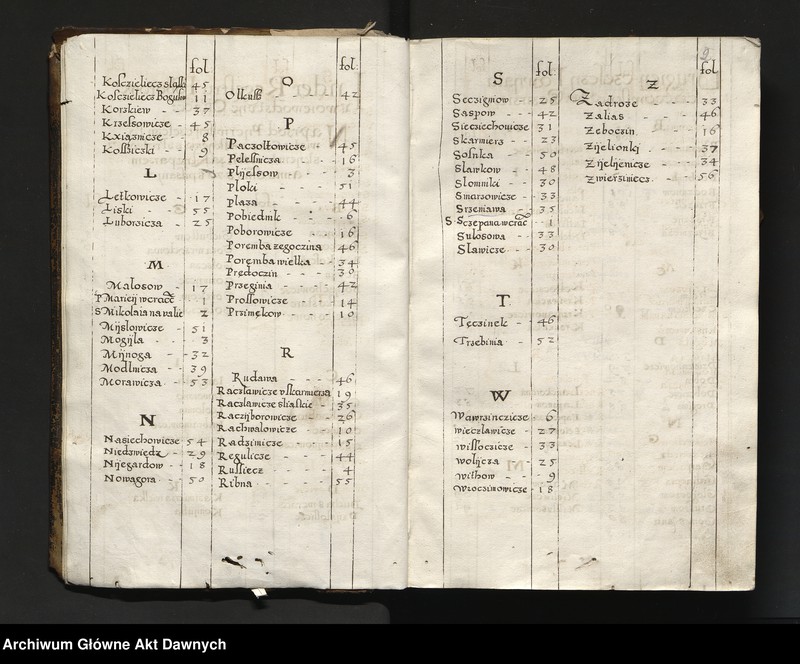 fol
Kosczielecz slaski 45
Koscielecz Bogusow 11
Korzkiew - - 37
Krzessowicze - 45
Kxiąznicze 8
Kossiczki - - 9
L
Letkowicze - - 17
Liski - 55
Luborzicza - 25
M
Malosow - 17
P Mariey w cracē 1
S Mikolaia na valie 2
Myslowicze - 51
Mogyla - - 3
Mynoga - - 32
Modlnicza - - 39
Morawicza - - 53
N
Nasiechowicze 54
Niedzwiedz - - 29
Niegardow - - 18
Nowagora - - 50
fol
O
Olkuss 42
P
Paczoltowicze - 45
Pelesnicza - - 16
Plyessow - - - 3
Ploki - - - 51
Plaza - - - 44
Pobiednik - - - 6
Poborowicze - - 16
Poremba zegoczina 46
Poremba wielka - - 34
Prędoczin - - - 30
Przeginia - - - 42
Prossowicze - - - 14
Przimękow - - - 10
R
Rudawa - - - 46
Raczlawicze v skarmierza 19
Raczlawicze slaskie - 35
Raczyborowicze - - 26
Rachwalowicze - - 10
Radzimicze - - - 15
Regulicze - - - 44
Russiecz - - - - 4
Ribna - - - - 55
2
fol
S
Seczigniow - - 25
Saspow - - 42
Sieciechowicze 31
Skarmiers - - 23
Sosnka - - 50
Slawkow - - 48
Slomniki - - 30
Smarzowicze - - 33
Srzeniawa - - 35
S Sczepana w crac - 1
Sulosowa - - 33
Slawicze - - 30
T
Tęczinek - - 46
Trzebinia - - 52
W
Wawrzinczicze - 6
Wieczlawicze - - 27
Wissoczicze - - 33
Wolycza - - 25
Withow - - - 9
Wroczimowicze - 18
fol
Z
Zadroze - - - 33
Zalias - - - 46
Zeboczin - - 16
Zyelionki - - - 37
Zyelyenicze - - - 34
Zwierziniecz - - 56
Archiwum Główne Akt Dawnych